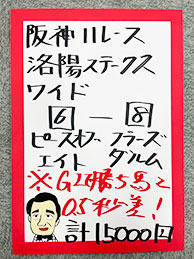 阪神11レース
洛陽ステークス
ワイド
6 — 8
ピースオブ フラーズ
エイト ダルム
※G1勝ち馬と
0.5秒差!
計15000円